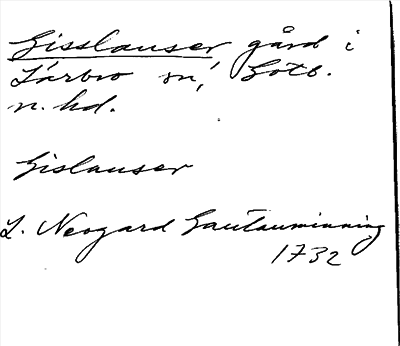 Gisslauser gård i
Lärbro sn, Gotl.
n. hd.
Gislauser
L. Neogard Gautauminning
1732